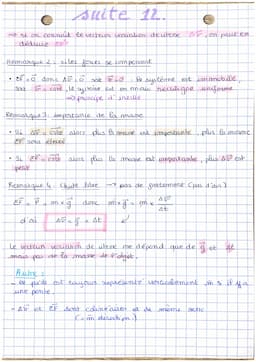 suite 12.
→ si on connait le vecteur variation de vitesse Δv⃗, on peut en
déduire ΣF⃗
Remarque 2 : si les forces se compensent
• ΣF⃗ = 0⃗ donc Δv⃗ = 0⃗ soit v⃗ = 0⃗ le système est immobile,
soit v⃗ = cste le système est en mvm rectiligne uniforme
→ principe d'inertie
Remarque 3 : importance de la masse
• Si Δv⃗ = cste alors plus la masse est importante, plus la
ΣF⃗ sera
• Si ΣF⃗ = cste alors plus la masse est importante, plus Δv⃗ est
petit
Remarque 4 : Chute libre → pas de frottement (pas d'air)
ΣF⃗ = P⃗ = m × g⃗ donc m × g⃗ = m × Δv⃗/Δt
d'où Δv⃗ = g⃗ × Δt
Le vecteur variation de vitesse ne dépend que de g⃗ et Δt
mais pas de la masse de l'objet.
Autre :
- Le poids est toujours représenté verticalement m s'il y a
une pente.
- Δv⃗ et ΣF⃗ sont colinéaires et de même sens
(= m direction)